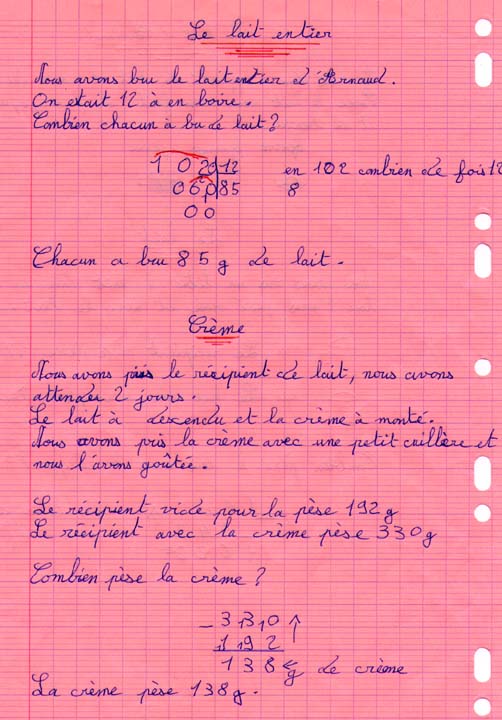 Le lait entier
Nous avons bu le lait entier d'Arnaud.
On était 12 à en boire.
Combien chacun à bu de lait?
1 0 2 0 12 en 102 combien de fois 12
0 6 0 85 8
0 0
Chacun a bu 85 g de lait.
Crème
Nous avons pris le récipient de lait, nous avons
attendu 2 jours.
Le lait à descendu et la crème à monté.
Nous avons pris la crème avec une petit cuillère et
nous l'avons goûtée.
Le récipient vide pour la pèse 192 g
Le récipient avec la crème pèse 330 g
Combien pèse la crème?
- 3 13 10 ↑
1 19 2
1 3 8 ← g de crème
La crème pèse 138 g.